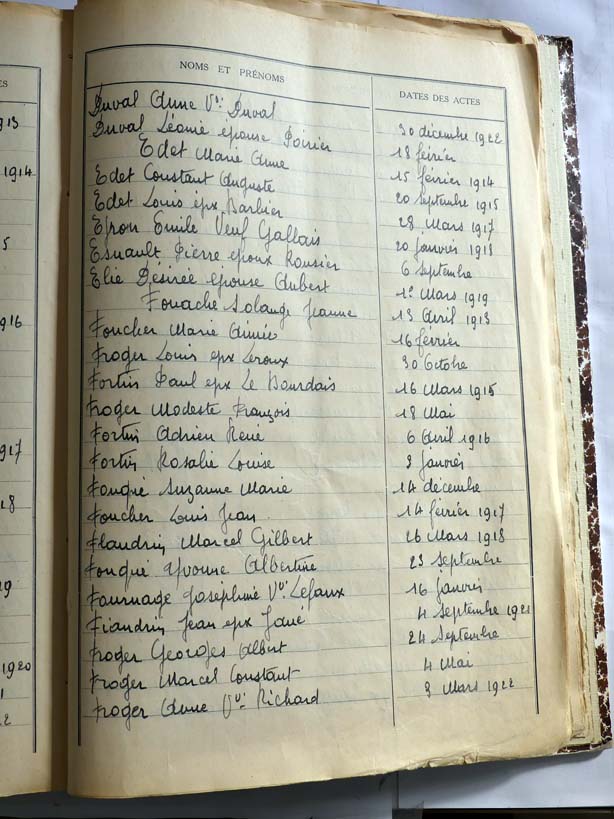 NOMS ET PRÉNOMS DATES DES ACTES
Duval Anne Vve Duval 30 décembre 1922
Duval Léonie épouse Poirier 18 février
Edet Marie Anne 15 février 1914
Edet Constant Auguste 20 Septembre 1915
Edet Louis epx Barbier 28 Mars 1917
Epron Emile Veuf Gallais 20 janvier 1918
Esnault Pierre époux Rousier 6 Septembre
Elie Désirée épouse Aubert 1er Mars 1919
Fouache Solange Jeanne 13 Avril 1913
Foucher Marie Aimée 16 février
Froger Louis epx Leroux 30 Octobre
Fortin Paul epx Le Bourdais 16 Mars 1915
Froger Modeste François 18 Mai
Fortin Adrien René 6 Avril 1916
Fortin Rosalie Louise janvier
Fouqué Suzanne Marie 14 décembre
Foucher Louis Jean 14 février 1917
Flandrin Marcel Gilbert 26 Mars 1918
Fouqué Yvonne Albertine 23 Septembre
Fournage Joséphine Vve Lefaux 16 janvier
Flandrin Jean epx 4 Septembre 1921
Froger Georges Albert 24 Septembre
Froger Marcel Constant 4 Mai
Froger Anne Vve Richard 3 Mars 1922